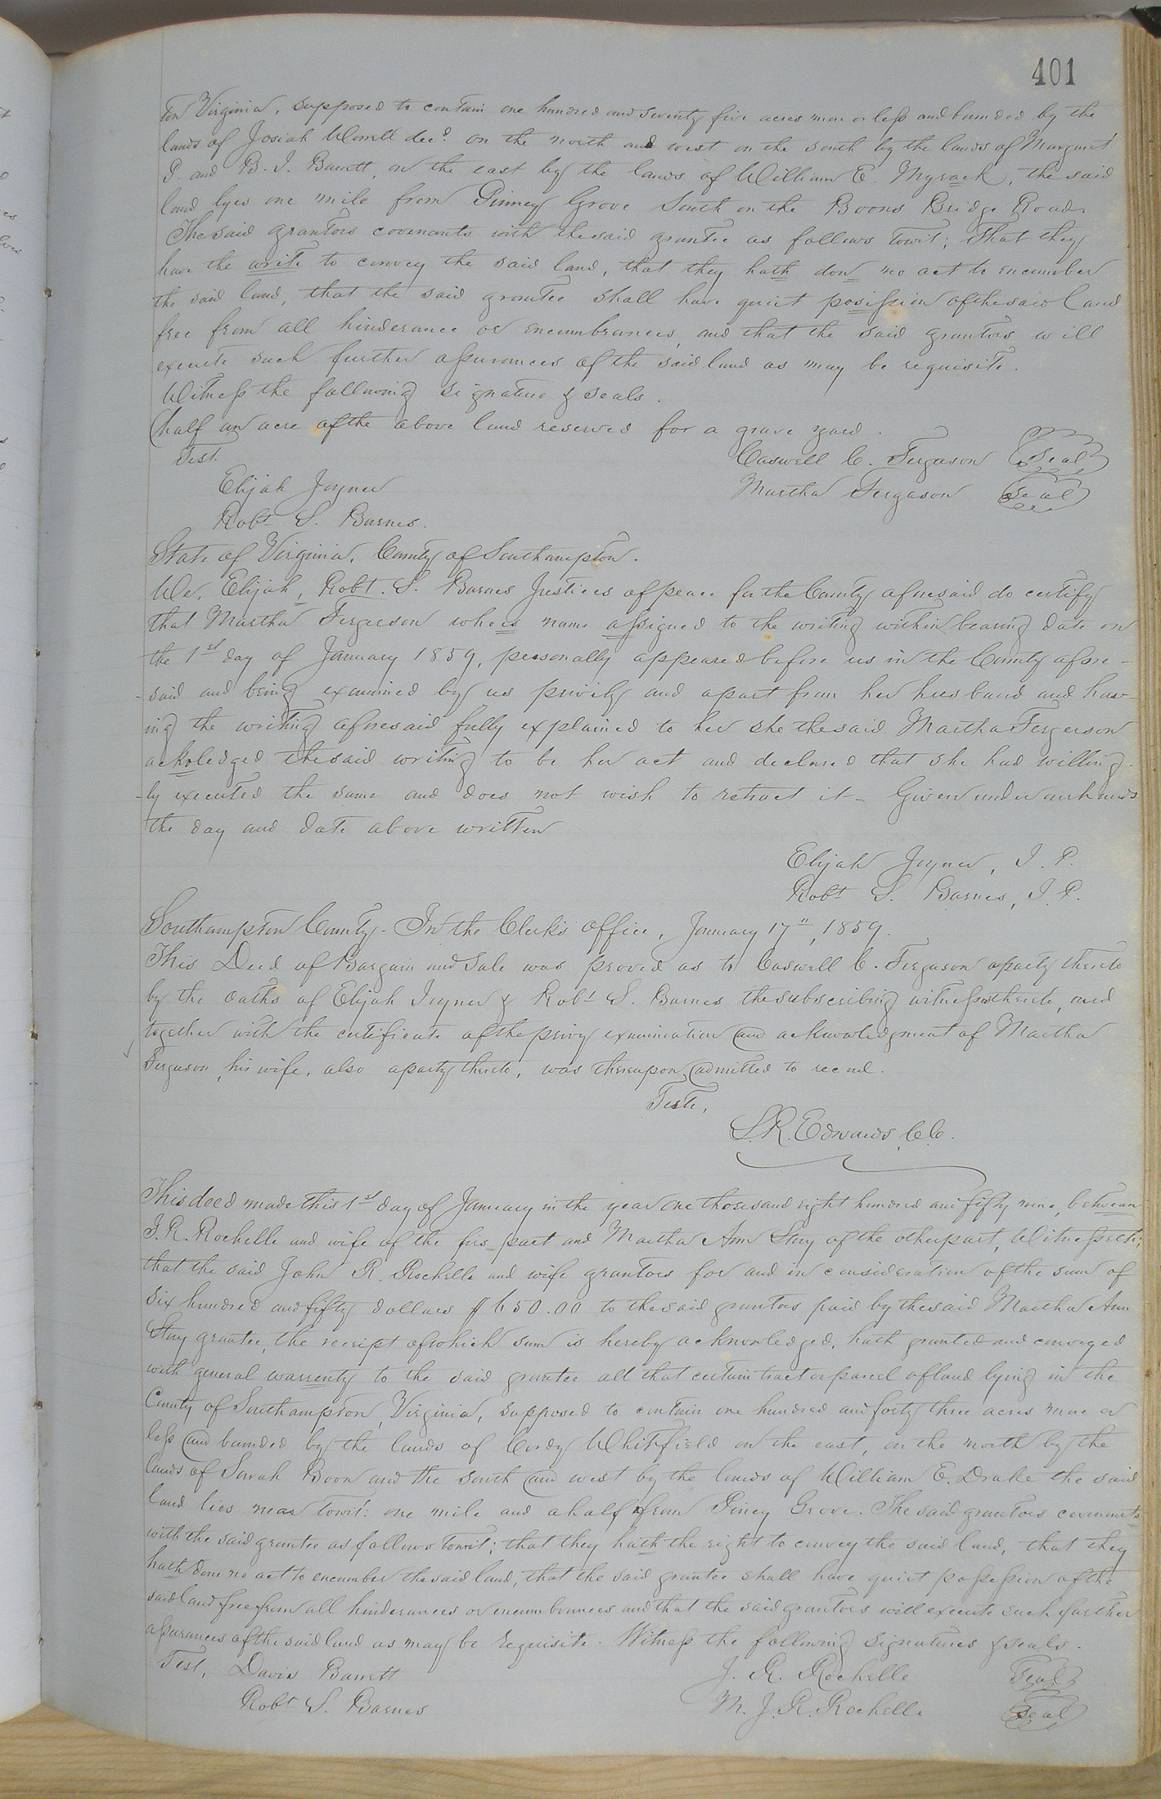 401
ton Virginia, supposed to contain one hundred and seventy five acres more or less and bounded by the
lands of Josiah Worrell decd. on the north and west on the south by the lands of Margaret
P. and B. J. Barrett, on the east by the lands of William E. Myrack, the said
land lyes one mile from Pinney Grove South on the Boons Bridge Road.
The said grantors covenants with the said grantee as follows towit; that they
have the write to convey the said land, that they hath don no act to encumber
the said land, that the said grantee shall have quiet posission of the said land
free from all hinderance or encumbrances, and that the said grantors will
execute such further assurances of the said land as may be requisite.
Witness the following signature & seals.
(half an acre of the above land reserved for a grave yard.
Test. Caswell C. Ferguson Seal
Elijah Joyner Martha Ferguson Seal
Robt. S. Barnes.
State of Virginia, County of Southampton.
We, Elijah, Robt. S. Barnes Justices of peace for the County aforesaid do certify
that Martha Fergerson whoes name assigned to the writing within bearing date on
the 1st day of January 1859, personally appeared before us in the County afore-
said and being examined by us privily and apart from her husband and hav-
ing the writing aforesaid fully explained to her she the said Martha Fergerson
acknoledged the said writing to be her act and declared that she had willing-
ly executed the same and does not wish to retract it - Given under our hands
the day and date above written
Elijah Joyner, J. P.
Robt. S. Barnes, J. P.
Southampton County - In the Clerk's Office, January 17", 1859.
This Deed of Bargain and Sale was proved as to Caswell C. Ferguson a party thereto
by the oaths of Elijah Joyner & Robt. S. Barnes the subscribing witnesses thereto, and
together with the certificate of the privy examination and acknowledgment of Martha
Ferguson, his wife, also a party thereto, was thereupon admitted to record.
Teste,
L. R. Edwards, C.C.
This deed made this 1st day of January in the year one thousand eight hundred and fifty nine, between
J. R. Rochelle and wife of the firs part and Martha Ann Story of the other part, Witnesseth;
that the said John R. Rochelle and wife grantors for and in consideration of the sum of
six hundred and fifty dollars $650.00 to the said grantors paid by the said Martha Ann
Story grantee, the receipt of which sum is hereby acknowledged, hath granted and conveyed
with general warrenty to the said grantee all that certain tract or parcel of land lying in the
County of Southampton, Virginia, supposed to contain one hundred and forty three acres more or
less and bounded by the lands of Cordy Whitfield on the east, on the north by the
lands of Sarah Boon and the south and west by the lands of William E. Drake the said
land lies near towit: one mile and a half from Piney Grove. The said grantors covenants
with the said grantee as follows towit; that they hath the right to convey the said land, that they
hath done no act to encumber the said land, that the said grantee shall have quiet possession of the
said land free from all hinderances or encumbrances and that the said grantors will execute such further
assurances of the said land as may be requisite. Witness the following signatures & seals.
Test, Davis Barrett J. R. Rochelle Seal
Robt S. Barnes M. J. R. Rochelle Seal